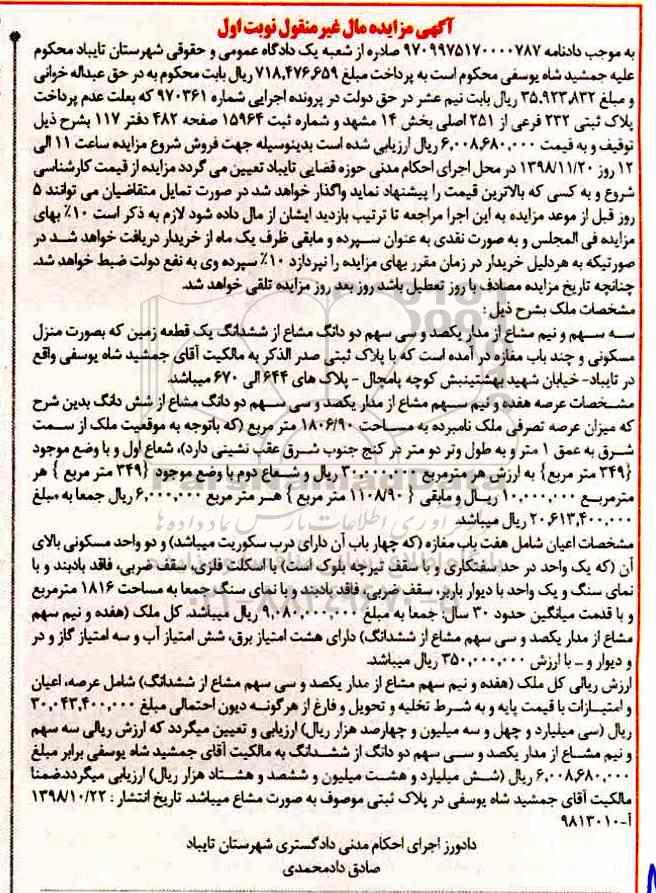 آگهی مزایده مال غیرمنقول نوبت اول
به موجب دادنامه ۹۷۰۹۹۷۵۱۷۰۰۰۰۷۸۷ صادره از شعبه یک دادگاه عمومی و حقوقی شهرستان تایباد محکوم
علیه جمشید شاه یوسفی محکوم است به پرداخت مبلغ ۷۱۸,۴۷۶,۶۵۹ ریال بابت محکوم به در حق عبداله خوانی
و مبلغ ۳۵,۹۲۳,۸۳۲ ریال بابت نیم عشر در حق دولت در پرونده اجرایی شماره ۹۷۰۳۶۱ که بعلت عدم پرداخت
پلاک ثبتی ۲۳۲ فرعی از ۲۵۱ اصلی بخش ۱۴ مشهد و شماره ثبت ۱۵۹۶۴ صفحه ۴۸۲ دفتر ۱۱۷ بشرح ذیل
توقیف و به قیمت ۶,۰۰۸,۶۸۰,۰۰۰ ریال ارزیابی شده است بدینوسیله جهت فروش شروع مزایده ساعت ۱۱ الی
۱۲ روز ۱۳۹۸/۱۱/۲۰ در محل اجرای احکام مدنی حوزه قضایی تایباد تعیین می گردد مزایده از قیمت کارشناسی
شروع و به کسی که بالاترین قیمت را پیشنهاد نماید واگذار خواهد شد در صورت تمایل متقاضیان می توانند ۵
روز قبل از موعد مزایده به این اجرا مراجعه تا ترتیب بازدید ایشان از مال داده شود لازم به ذکر است ۱۰٪ بهای
مزایده فی المجلس و به صورت نقدی به عنوان سپرده و مابقی ظرف یک ماه از خریدار دریافت خواهد شد در
صورتیکه به هردلیل خریدار در زمان مقرر بهای مزایده را نپردازد ۱۰٪ سپرده وی به نفع دولت ضبط خواهد شد.
چنانچه تاریخ مزایده مصادف با روز تعطیل باشد روز بعد روز مزایده تلقی خواهد شد.
مشخصات ملک بشرح ذیل :
سه سهم و نیم مشاع از مدار یکصد و سی سهم دو دانگ مشاع از ششدانگ یک قطعه زمین که بصورت منزل
مسکونی و چند باب مغازه در آمده است که با پلاک ثبتی صدر الذکر به مالکیت آقای جمشید شاه یوسفی واقع
در تایباد- خیابان شهید بهشتینبش کوچه پامچال - پلاک های ۶۴۴ الی ۶۷۰ میباشد.
مشخصات عرصه هفده و نیم سهم مشاع از مدار یکصد و سی سهم دو دانگ مشاع از شش دانگ بدین شرح
که میزان عرصه تصرفی ملک نامبرده به مساحت ۱۸۰۶/۹۰ متر مربع (که باتوجه به موقعیت ملک از سمت
شرق به عمق ۱ متر و به طول وتر دو متر در کنج جنوب شرق عقب نشینی دارد)، شعاع اول و با وضع موجود
{۳۴۹ متر مربع} به ارزش هر مترمربع ۳۰,۰۰۰,۰۰۰ ریال و شعاع دوم با وضع موجود {۳۴۹ متر مربع } هر
مترمربع ۱۰,۰۰۰,۰۰۰ ریال و مابقی { ۱۱۰۸/۹۰ متر مربع } هر متر مربع ۶,۰۰۰,۰۰۰ ریال جمعا به مبلغ
۲۰,۶۱۳,۴۰۰,۰۰۰ ریال میباشد.
مشخصات اعیان شامل هفت باب مغازه (که چهار باب آن دارای درب سکوریت میباشد) و دو واحد مسکونی بالای
آن (که یک واحد در حد سفتکاری و با سقف تیرچه بلوک است) با اسکلت فلزی، سقف ضربی، فاقد بادبند و با
نمای سنگ و یک واحد با دیوار باربر، سقف ضربی، فاقد بادبند و با نمای سنگ جمعا به مساحت ۱۸۱۶ مترمربع
و با قدمت میانگین حدود ۳۰ سال: جمعا به مبلغ ۹,۰۸۰,۰۰۰,۰۰۰ ریال میباشد. کل ملک (هفده و نیم سهم
مشاع از مدار یکصد و سی سهم مشاع از ششدانگ) دارای هشت امتیاز برق، شش امتیاز آب و سه امتیاز گاز و در
و دیوار و ... با ارزش ۳۵۰,۰۰۰,۰۰۰ ریال میباشد.
ارزش ریالی کل ملک (هفده و نیم سهم مشاع از مدار یکصد و سی سهم مشاع از ششدانگ) شامل عرصه، اعیان
و امتیازات با قیمت پایه و به شرط تخلیه و تحویل و فارغ از هرگونه دیون احتمالی مبلغ ۳۰,۰۴۳,۴۰۰,۰۰۰
ریال (سی میلیارد و چهل و سه میلیون و چهارصد هزار ریال) ارزیابی و تعیین میگردد که ارزش ریالی سه سهم
و نیم مشاع از مدار یکصد و سی سهم دو دانگ از ششدانگ به مالکیت آقای جمشید شاه یوسفی برابر مبلغ
۶,۰۰۸,۶۸۰,۰۰۰ ریال (شش میلیارد و هشت میلیون و ششصد و هشتاد هزار ریال) ارزیابی میگردد.ضمنا
مالکیت آقای جمشید شاه یوسفی در پلاک ثبتی موصوف به صورت مشاع میباشد. تاریخ انتشار : ۱۳۹۸/۱۰/۲۲
آ-۹۸۱۳۰۱۰
دادورز اجرای احکام مدنی دادگستری شهرستان تایباد
صادق دادمحمدی